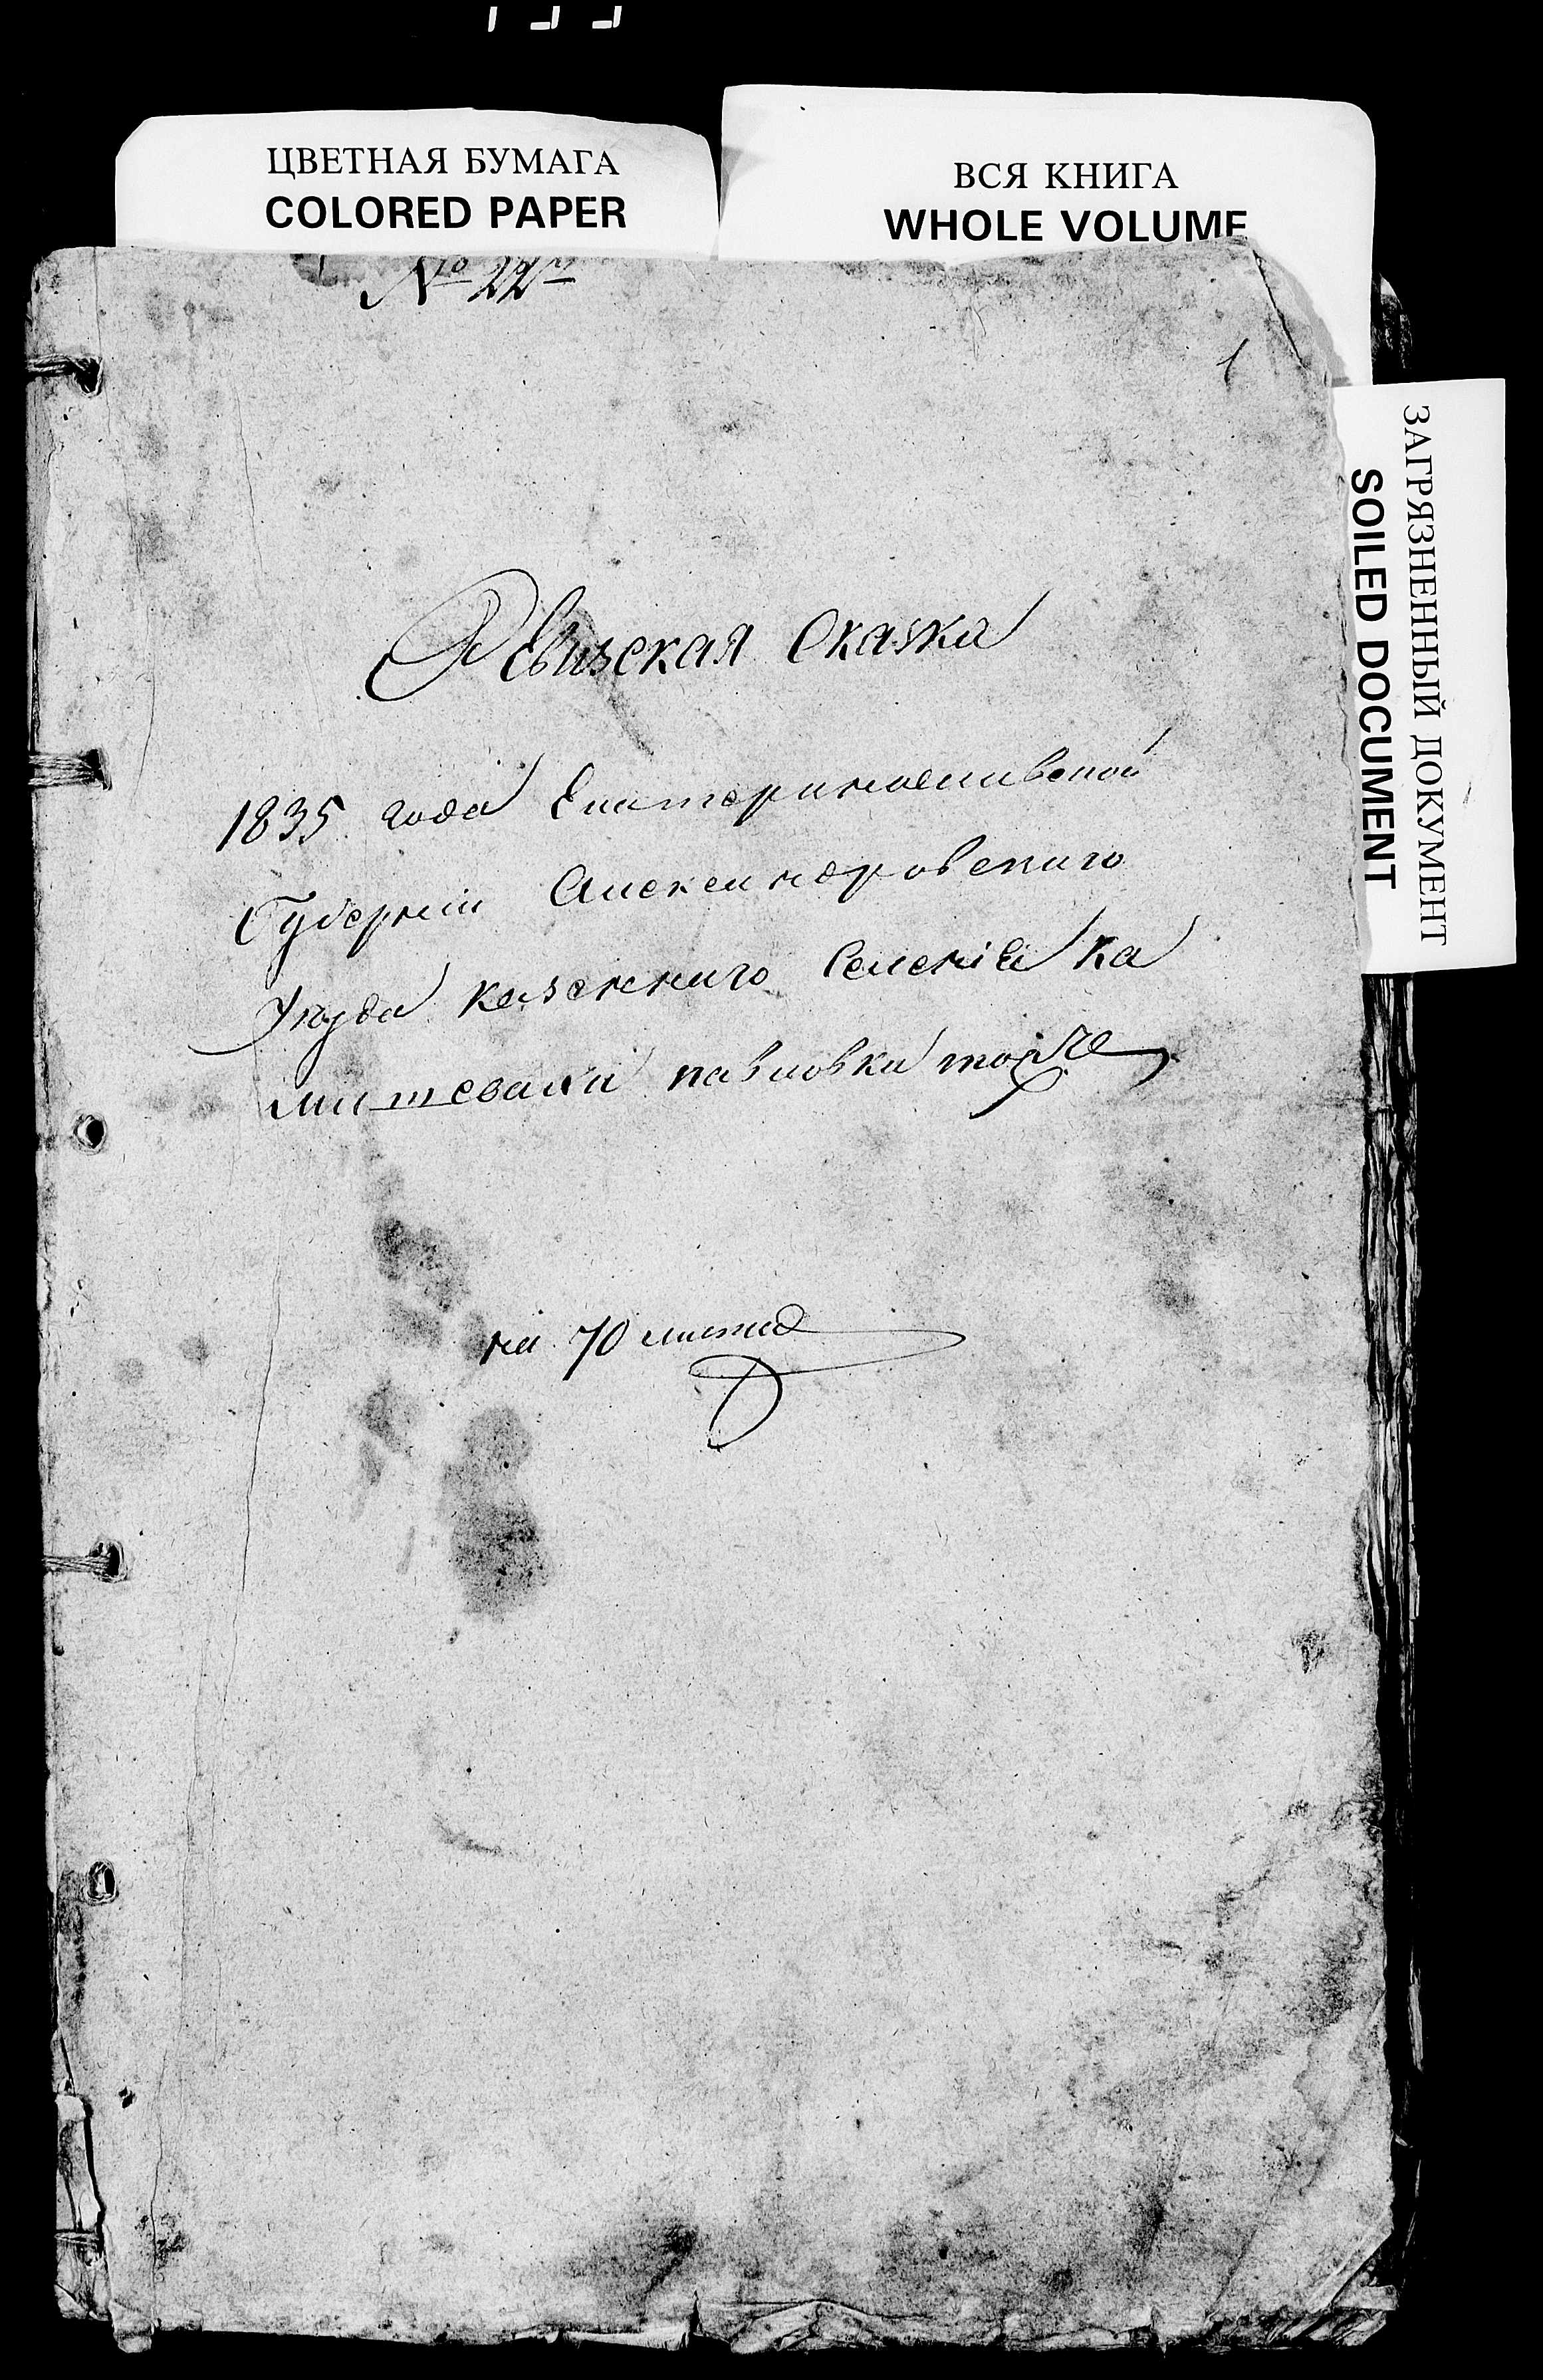 ЦВЕТНАЯ БУМАГА
COLORED PAPER
ВСЯ КНИГА
WHOLE VOLUME
ЗАГРЯЗНЕННЫЙ ДОКУМЕНТ
SOILED DOCUMENT
№ 22й
1
Ревизская Сказка
1835 года Екатеринославской
Губернiи Александровскаго
Уѣзда казеннаго Селенiя Ка
мышевахи павловки тожъ
на 70 листа